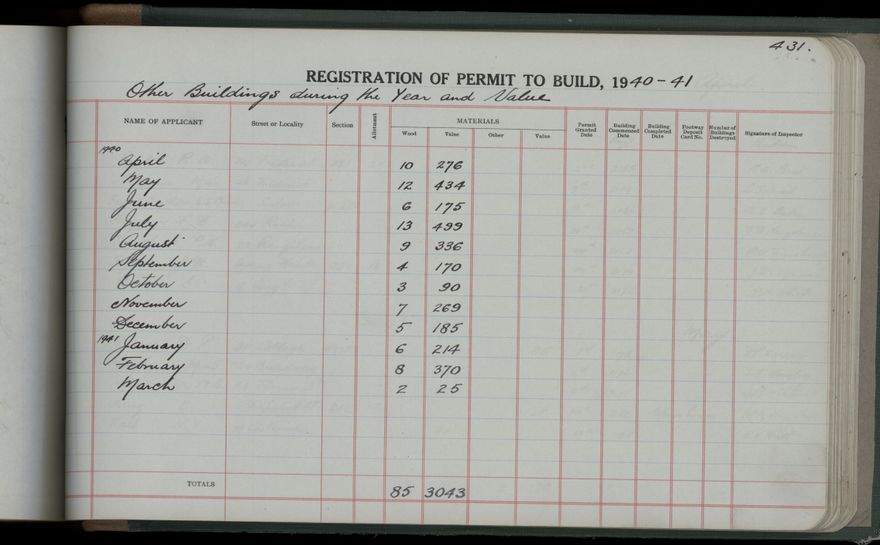 431.
REGISTRATION OF PERMIT TO BUILD, 1940-41
Other Buildings during the Year and Value
NAME OF APPLICANT Street or Locality Section Allotment MATERIALS Wood Value Other Value Permit Granted Date Building Commenced Date Building Completed Date Footway Deposit Card No. Number of Buildings Destroyed Signature of Inspector
1940
April 10 276
May 12 434
June 6 175
July 13 499
August 9 336
September 4 170
October 3 90
November 7 269
December 5 185
1941 January 6 214
February 8 370
March 2 25
TOTALS 85 3043